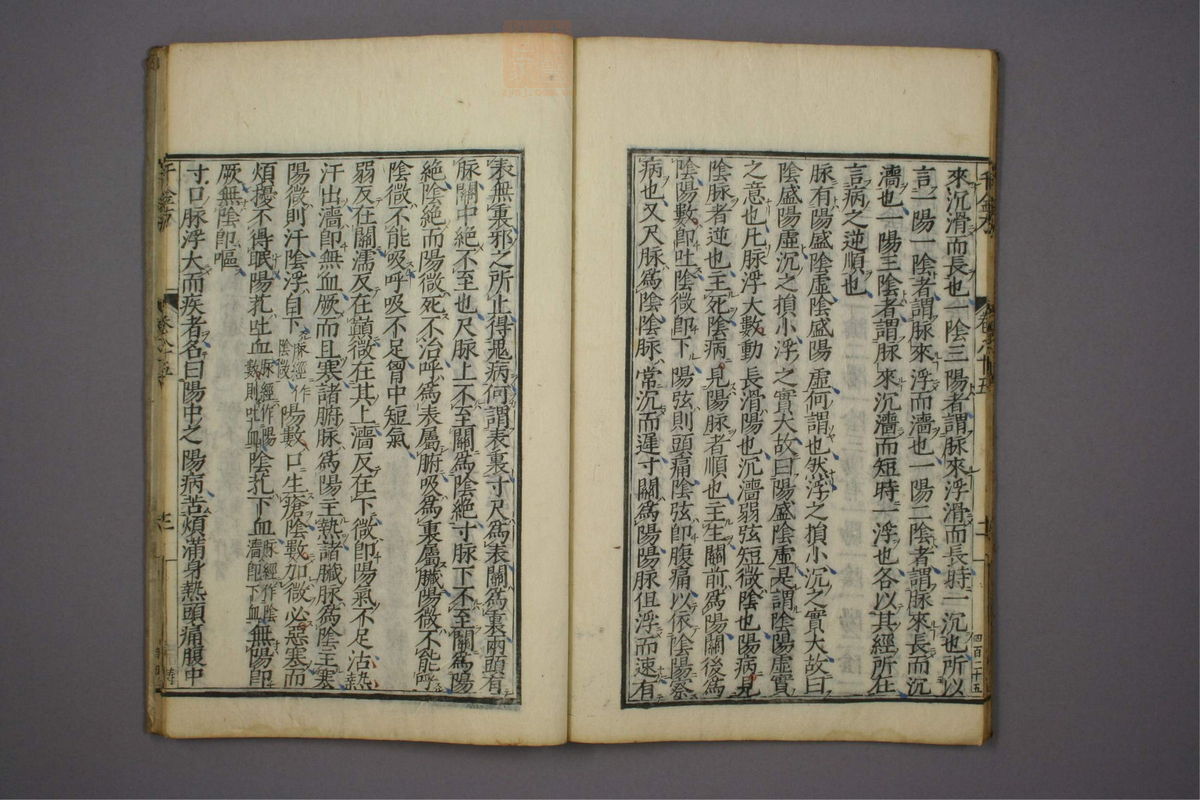 來沉滑而長也一陰三陽者謂脉來浮滑而長時一沉也所以
言一陽一陰者謂脉來浮而濇也一陽二陰者謂脉來長而沉
濇也一陽三陰者謂脉來沉濇而短時一浮也各以其經所在
言病之逆順也
脉有陽盛陰虛陰盛陽虛何謂也然浮之損小沉之實大故曰
陰盛陽虛沉之損小浮之實大故曰陽盛陰虛是謂陰陽虛實
之意也凡脉浮大數動長滑陽也沉濇弱弦短微陰也陽病見
陰脉者逆也主死陰病見陽脉者順也主生關前為陽關後為
陰陽數即吐陰微即下陽弦則頭痛陰弦即腹痛以依陰陽察
病也又尺脉為陰陰脉常沉而遲寸關為陽陽脉但浮而速有
表無裏邪之所止得鬼病何謂表裏寸尺為表關為裏兩頭有
脉關中絕不至也尺脉上不至關為陰絕寸脉下不至關為陽
絕陰絕而陽微死不治呼為表屬腑吸為裏屬臟陽微不能呼
陰微不能吸呼吸不足胷中短氣
弱反在關濡反在巔微在其上濇反在下微即陽氣不足沾熱
汗出濇即無血厥而且寒諸腑脉為陽主熱諸臟脉為陰主寒
陽微則汗陰浮自下脉經作陰微陽數口生瘡陰數加微必惡寒而
煩擾不得眠陽芤吐血脉經作陽數則吐血陰芤下血脉經作陰濇即下血無陽即
厥無陰即嘔
寸口脉浮大而疾者名曰陽中之陽病苦煩滿身熱頭痛腹中
千金方
卷八十五
四百二十五